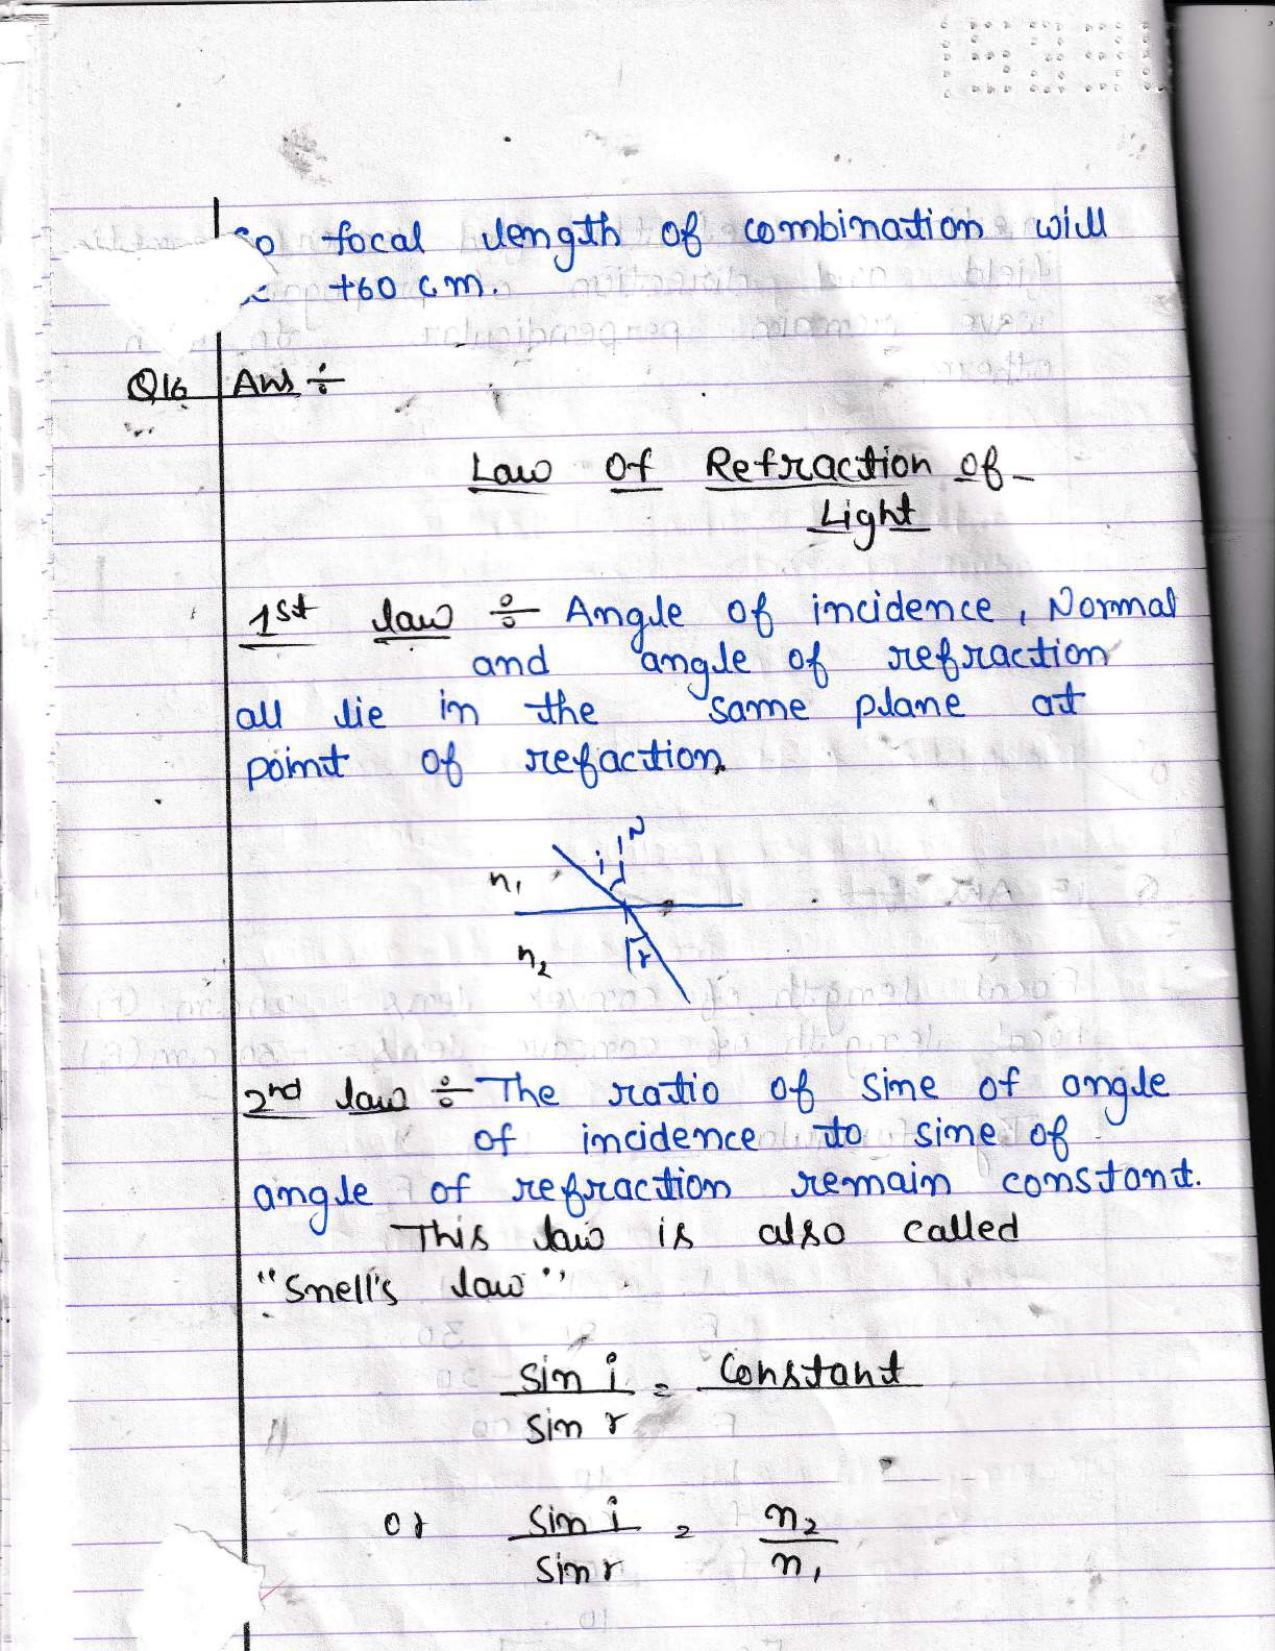 So focal length of combination will
+60 cm.
Q16 Ans ÷
Law Of Refraction of
Light
1st law ÷ Angle of incidence, Normal
and angle of refraction
all lie in the same plane at
point of refaction.
N
i
n1
n2
r
2nd law ÷ The ratio of sine of angle
of incidence to sine of
angle of refraction remain constant.
This law is also called
"Snell's law".
sin i = Constant
sin r
or sin i = n2
sin r n1